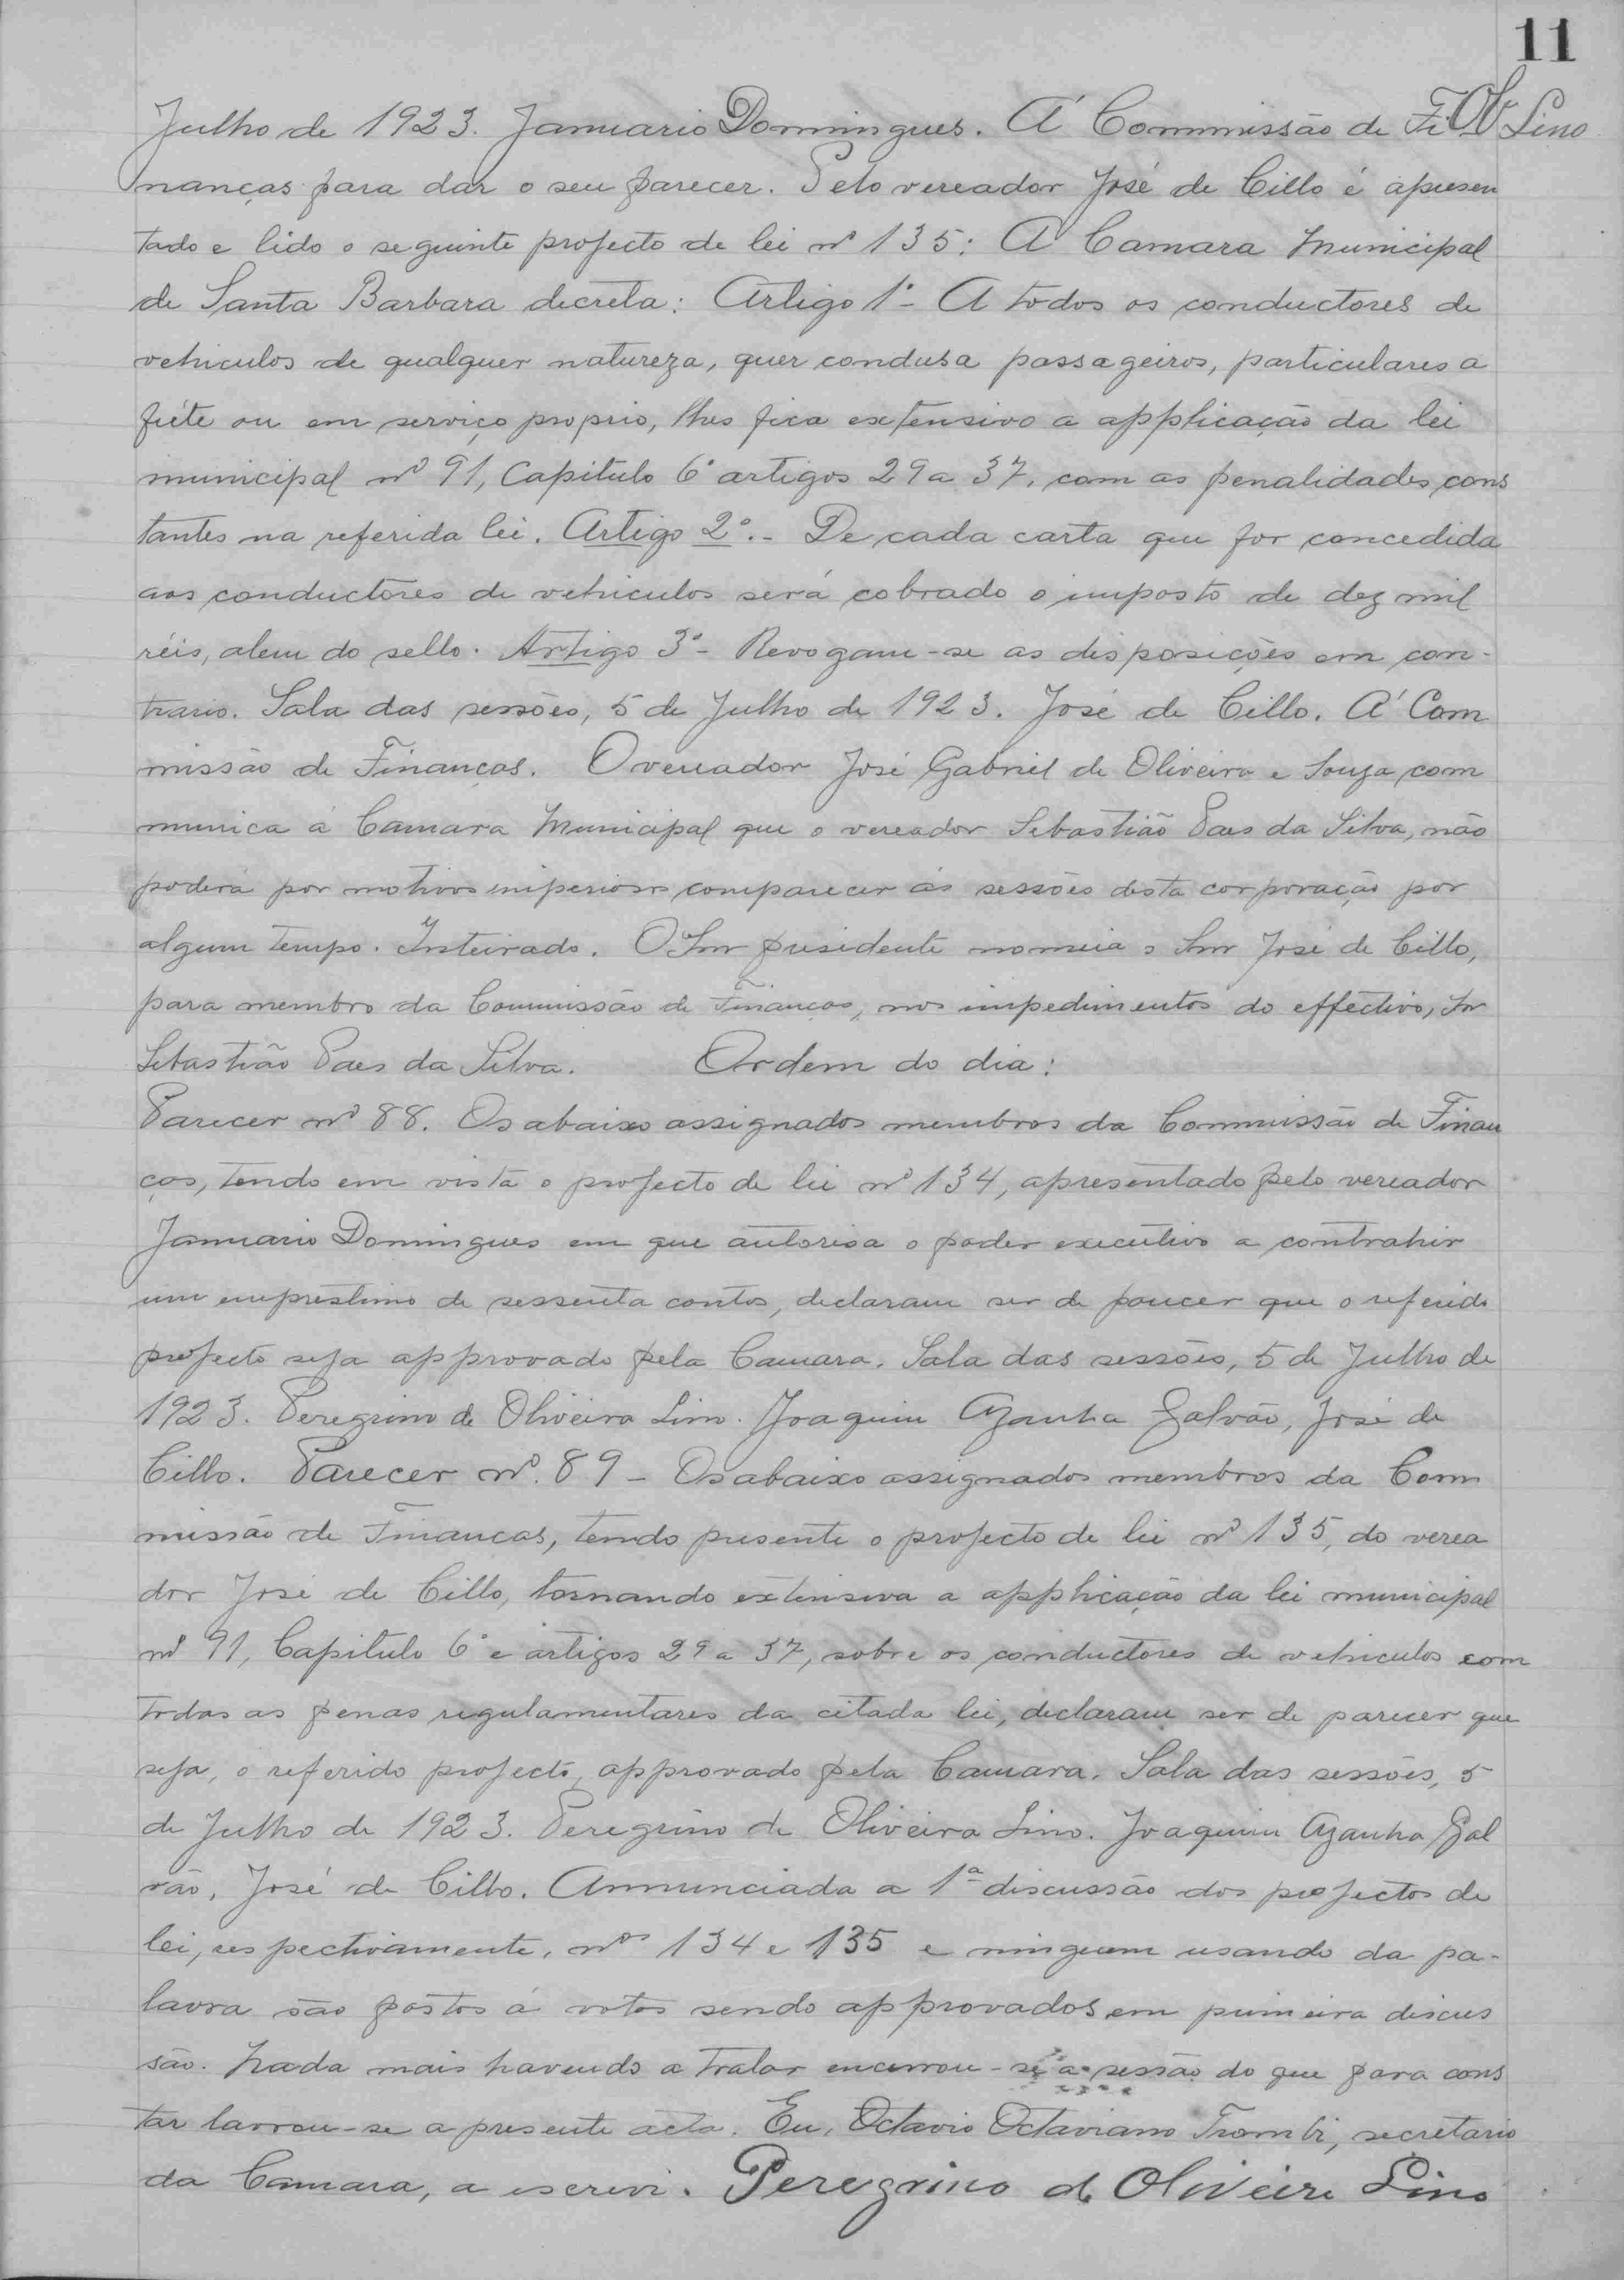 11
Julho de 1923. Januario Domingues. Á Commissão de Fi Ol Lino
nanças para dar o seu parecer. Pelo vereador José de Cillo é apresen
tado e lido o seguinte projecto de lei nº 135: A Camara Municipal
de Santa Barbara decreta: Artigo 1º- A todos os conductores de
vehiculos de qualquer natureza, quer condusa passageiros, particulares a
fréte ou em serviço proprio, lhes fica extensivo a applicação da lei
municipal nº 91, Capitulo 6º artigos 29 a 37, com as penalidades cons
tantes na referida lei. Artigo 2º.- De cada carta que for concedida
aos conductores de vehiculos será cobrado o imposto de dez mil
réis, alem do sello. Artigo 3º- Revogam-se as disposições em con-
trario. Sala das sessões, 5 de Julho de 1923. José de Cillo. Á Com
missão de Finanças. O vereador José Gabriel de Oliveira e Souza com
munica á Camara Municipal que o vereador Sebastião Paes da Silva, não
poderá por motivos imperiosos comparecer ás sessões desta corporação por
algum tempo. Inteirado. O Snr presidente nomeia o Snr José de Cillo,
para membro da Commissão de Finanças, nos impedimentos do effectivo, Snr
Sebastião Paes da Silva. Ordem do dia:
Parecer nº 88. Os abaixo assignados membros da Commissão de Finan
ças, tendo em vista o projecto de lei nº 134, apresentado pelo vereador
Januario Domingues em que autorisa o poder executivo a contrahir
um emprestimo de sessenta contos, declaram ser de parecer que o referido
projecto seja approvado pela Camara. Sala das sessões, 5 de Julho de
1923. Peregrino de Oliveira Lino. Joaquim Azanha Galvão, José de
Cillo. Parecer nº. 89 - Os abaixo assignados membros da Com
missão de Finanças, tendo presente o projecto de lei nº 135, do verea
dor José de Cillo, tornando extensiva a applicação da lei municipal
nº 91, Capitulo 6º e artigos 29 a 37, sobre os conductores de vehiculos com
todas as penas regulamentares da citada lei, declaram ser de parecer que
seja, o referido projecto, approvado pela Camara. Sala das sessões, 5
de Julho de 1923. Peregrino de Oliveira Lino. Joaquim Azanha Gal
vão, José de Cillo. Annunciada a 1ª discussão dos projectos de
lei, respectivamente, nos 134 e 135 e ninguem usando da pa-
lavra são postos á votos sendo approvados em primeira discus
são. Nada mais havendo a tratar encerrou-se a sessão do que para cons
tar lavrou-se a presente acta. Eu, Octavio Octaviano Trombi, secretario
da Camara, a escrevi. Peregrino de Oliveira Lino